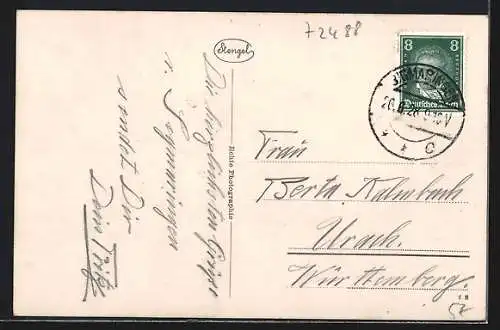 72488
Stengel
8 8
Deutsches Reich
SIGMARINGEN
Echte Photographie
Die herzlichsten Grüße
v. Sigmaringen
sendet Dir
Dein Fritz
Frau
Berta Kalmbach
Urach.
Württemberg.